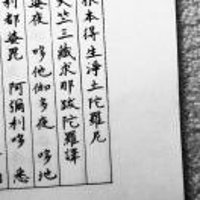 根本得生淨土陀羅尼
天竺三藏求那跋陀羅譯
婆夜 哆他伽多夜 哆地
利都婆毘 阿彌利哆 悉